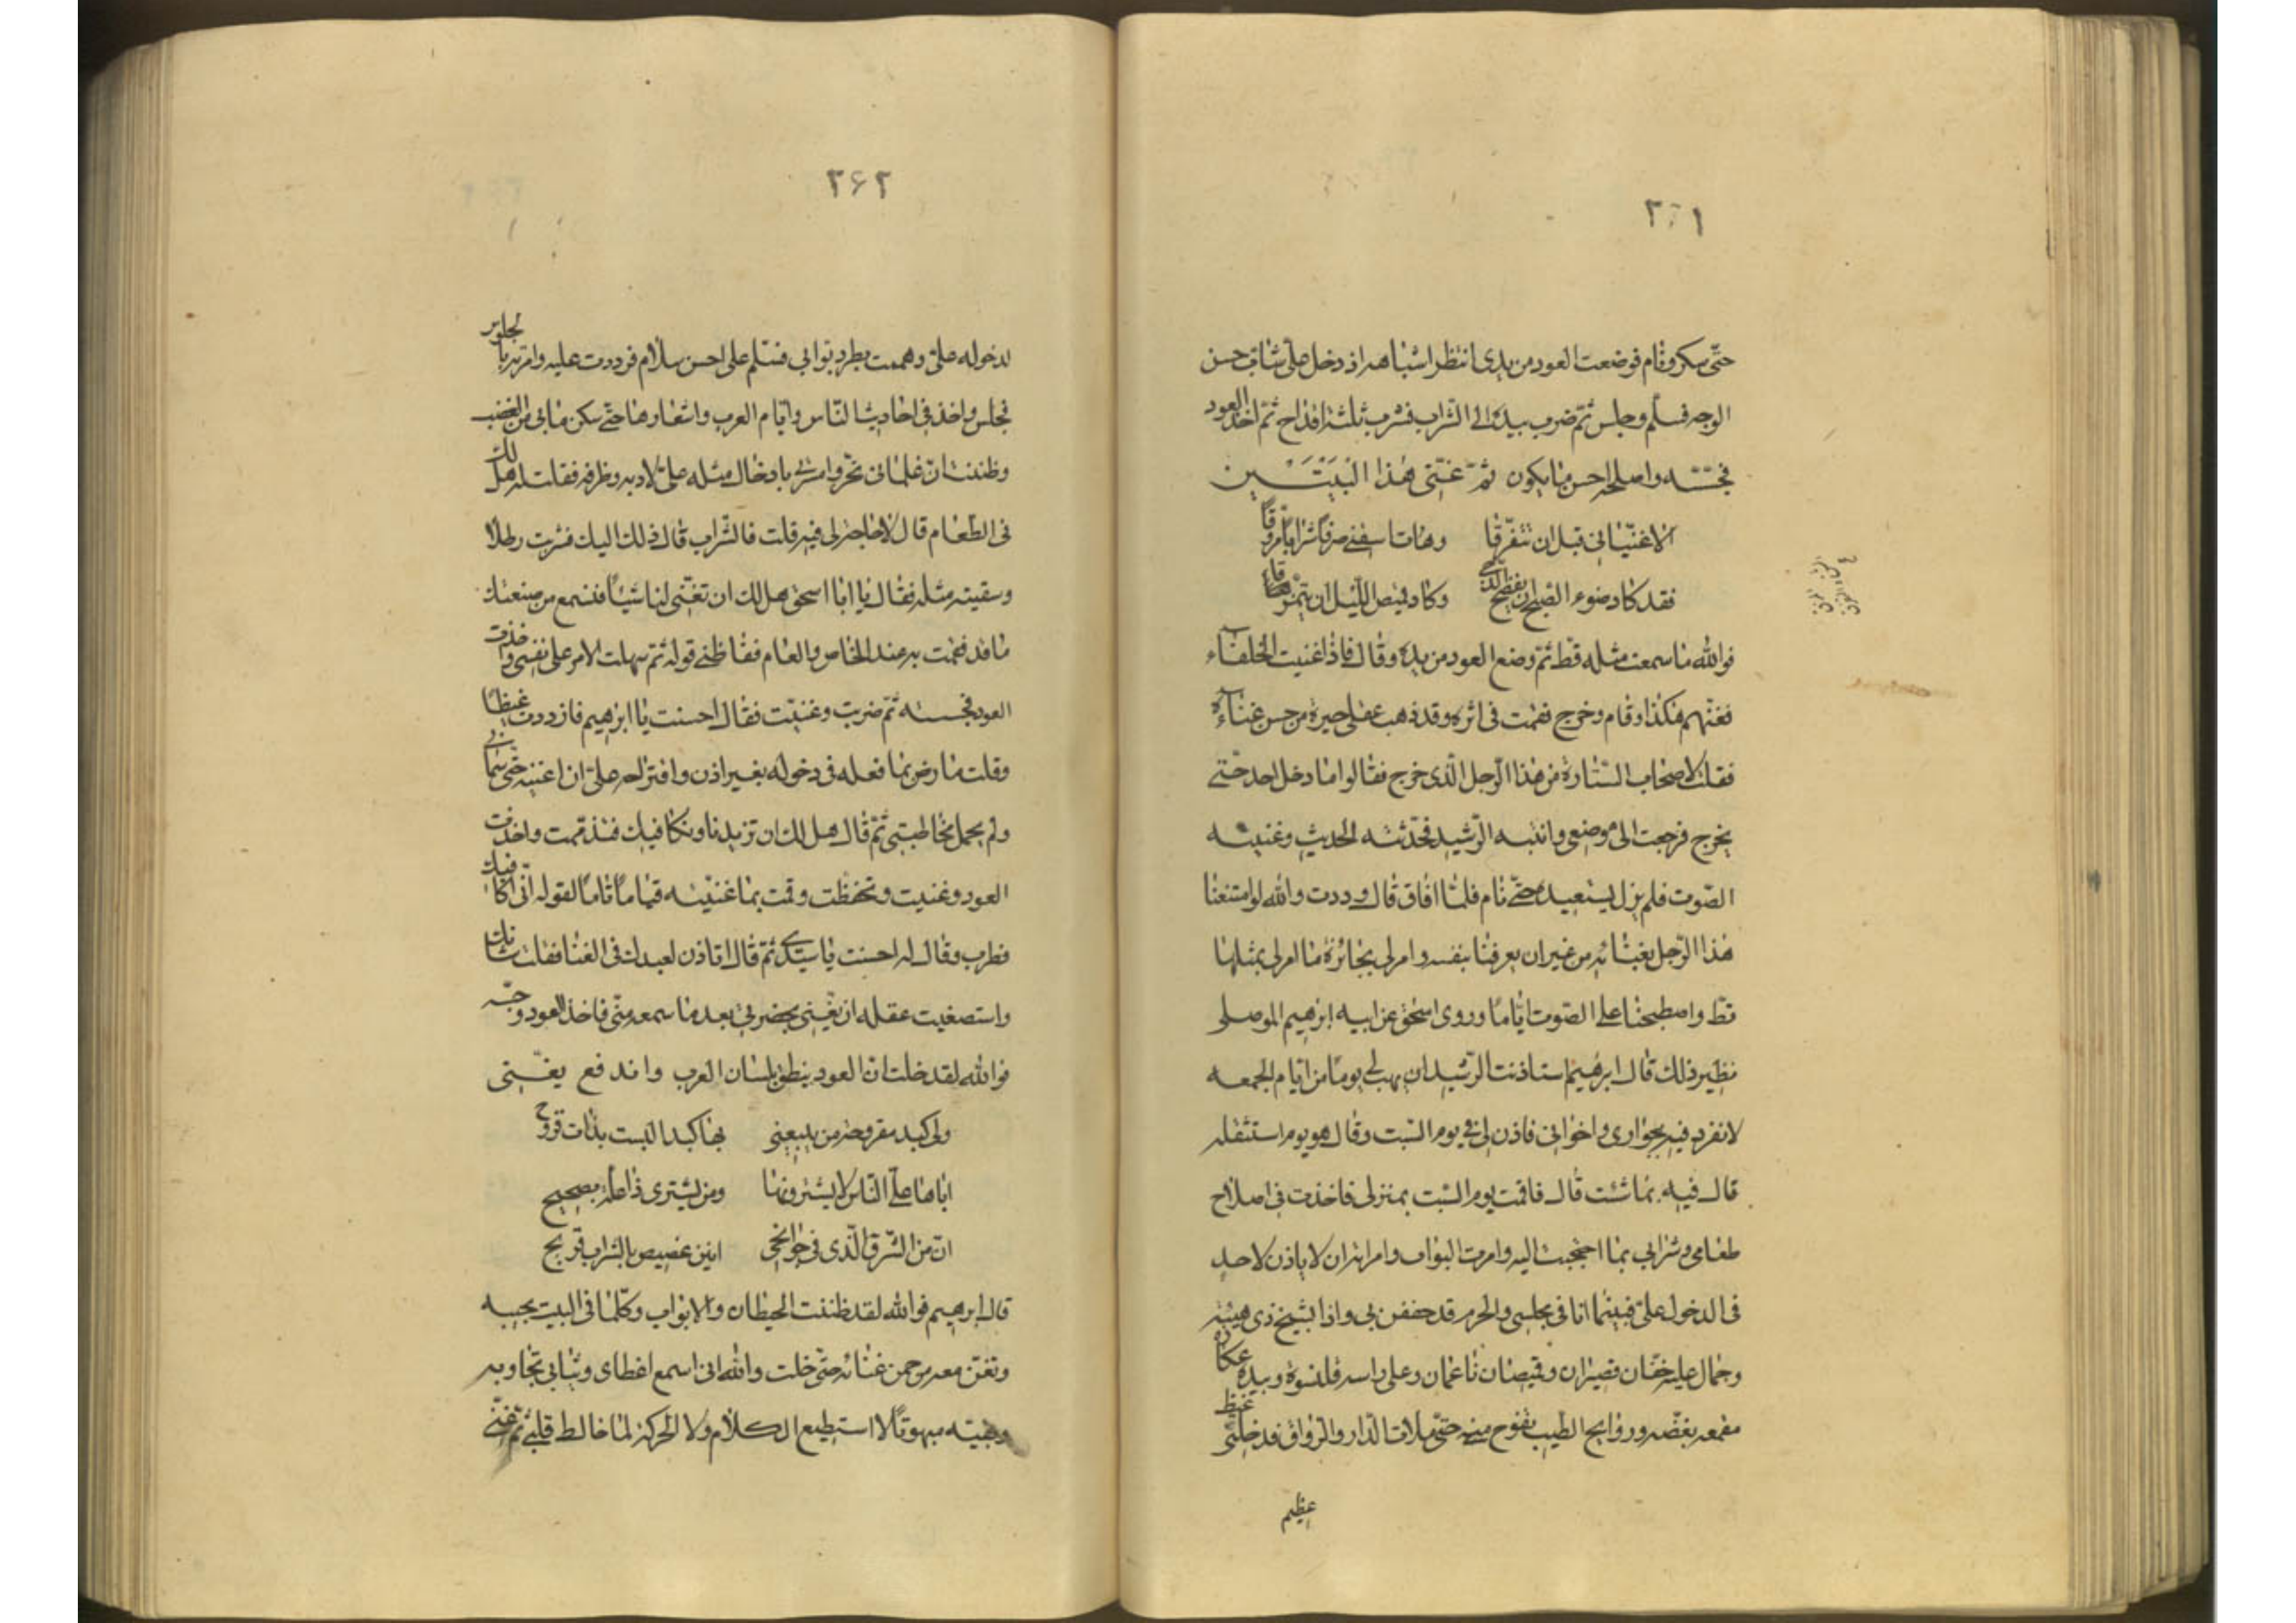 ٢٦١
حتّى سكر ونام فوضعت العود من يدى انتظر انتباهه اذ دخل علىّ شاب حسن
الوجه فسلّم وجلس ثمّ ضرب بيده الى الشراب فشرب ثلثة اقداح ثمّ اخذ العود
فجسّه واصلحه احسن ما يكون ثمّ غنّى هذا البَيْتَين
الا غنّيانى قبل ان نتفرّقا وهات اسقنى صرفًا شرابًا مروّقًا
فقد كاد ضوء الصبح ان يفضح الدّجى وكاد قميص اللّيل ان يتمزّقا
فوالله ما سمعت مثله قطّ ثمّ وضع العود من يده وقال فاذا غنيت الخلفاء
فغنّهم هكذا وقام وخرج فقمت فى اثره وقد ذهب عقلى حيرة من حسن غناءه
فقلت لاصحاب الستارة من هذا الرّجل الّذى خرج فقالوا ما دخل احد حتى
يخرج فرجعت الى موضعى وانتبه الرّشيد فحدّثته الحديث وغنيته
الصّوت فلم يزل يستعيده حتى نام فلمّا افاق قال وددت والله لو امتعنا
هذا الرّجل بغنائه من غير ان يعرفنا بنفسه وامر لى بجائزة ما امر لى بمثلها
قطّ واصطبحنا على الصّوت ايّامًا وروى اسحق عن ابيه ابرهيم الموصلى
نظير ذلك قال ابرهيم استاذنت الرّشيد ان يهب لى يومًا من ايّام الجمعه
لانفرد فيه بجوارى واخوانى فاذن لى فى يوم السّبت وقال هو يوم استثقله
قال فيه بما شئت قال فاقمت يوم السّبت بمنزلى فاخذت فى اصلاح
طعامى وشرابى بما احتجت اليه وامرت البواب وامرته ان لا ياذن لاحد
فى الدخول علىّ فبينما انا فى مجلسى والحرم قد حففن بى واذا بشيخ ذى هيبة
وجمال عليه خفّان قصيران وقميصان ناعمان وعلى راسه قلنسوة وبيده عكازة
مقمعه بفضّه وروايح الطّيب تفوح منه حتّى ملات الدّار والرواق فدخلنى غيظ
عظيم
٢٦٢
لدخوله علىّ وهممت بطرد بوّابى فسلّم علىّ احسن سلام فرددت عليه وامرته بالجلوس
فجلس واخذ فى احاديث النّاس وايّام العرب واشعارها حتّى سكن ما بى من الغضب
وظننت انّ غلمانى تحرّوا مسرتى بادخال مثله علىّ لادبه وظرفه فقلت له هل لك
فى الطّعام قال لا حاجة لى فيه قلت فالشّراب قال ذلك اليك فشربت رطلًا
وسقيته مثله فقال يا ابا اسحق هل لك ان تغنّى لنا شيئًا فنسمع من صنعتك
ما قد فقت به عند الخاص والعام فغاظنى قوله ثمّ سهلت الامر على نفسى واخذت
العود فجسسته ثمّ ضربت وغنيت فقال احسنت يا ابرهيم فازددت غيظًا
وقلت ما رضى بما فعله فى دخوله بغير اذن واقتراحه علىّ ان اغنيه حتّى سمّانى
ولم يجمل مخاطبتى ثمّ قال هل لك ان تزيدنا ونكافيك فتذممت واخذت
العود وغنيت وتحفّظت وقمت بما غنيته قيامًا تامًا لقوله انّى اكافيك
فطرب وقال له احسنت يا سيّدى ثمّ قال اتاذن لعبدك فى الغنا فقلت شانك
واستضعيت عقله ان يغنّى بحضرتى بعد ما سمعه منّى فاخذ العود وجسّه
فوالله لقد خلت انّ العود ينطق بلسان العرب واندفع يغنّى
ولى كبد مقروحة من يبيعنى بها كبدا ليست بذات قروح
اباها علىّ النّاس لا يشترونها ومن يشترى ذا علّة بصحيح
انّ من الشّوق الّذى فى جوانحى انين غصيص بالشراب قريح
قال ابرهيم فوالله لقد ظننت الحيطان والابواب وكلّما فى البيت يجيبه
وتغنّ معه من حسن غنائه حتّى خلت والله انى اسمع اعضاى وثيابى تجاوبه
وبقيت مبهوتًا لا استطيع الكلام ولا الحركة لما خالط قلبى ثمّ غنّى